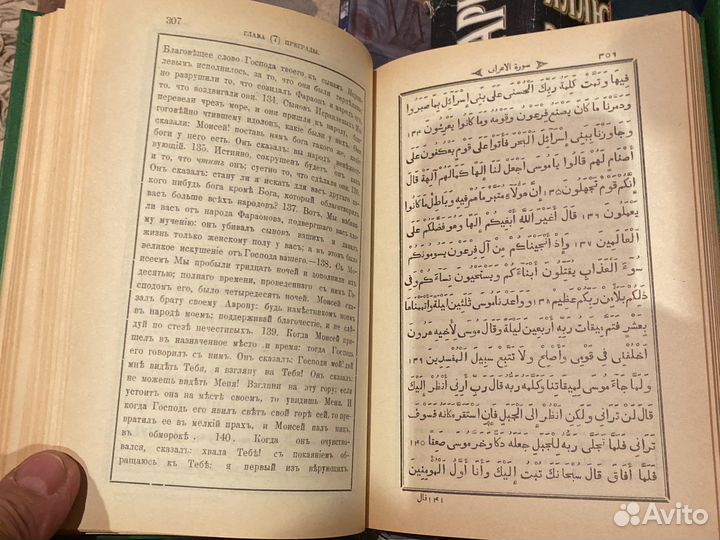 307
ГЛАВА (7) ПРЕГРАДЫ.
Благовѣщее слово Господа твоего къ сынамъ
исполнилось, за то, что они были
разрушили то, что созидалъ Фараонъ и народъ
его. 134. Сыновъ
перевели чрезъ море, и они пришли къ народу,
благоговѣйно чтившему идоловъ, какіе были у нихъ. Они
сказали: Моисей! поставь намъ бога такого же, какіе
боги у него есть. Онъ сказалъ: вы народъ
135. Истинно, сокрушенъ будетъ онъ съ
тѣмъ, что чтитъ онъ; суетно то, что сдѣлали они.
Онъ сказалъ: стану ли я искать для васъ другаго
нибудь бога кромѣ Бога, который облаготворилъ
васъ больше всѣхъ народовъ? 137. Вотъ, Мы избавили
васъ отъ народа Фараонова, подвергшаго васъ
мученію: онъ убивалъ сыновъ вашихъ и давалъ
жизнь только женскому полу у васъ; въ этомъ было
великое искушеніе отъ Господа вашего.—138. Съ Моисеемъ
Мы пробыли тридцать ночей и дополнили ихъ
десятью; полнаго времени, проведеннаго съ Господомъ
его, было четыредесять ночей. Моисей сказалъ
брату своему Аврону: будь намѣстникомъ моимъ
въ народѣ моемъ; поддерживай благочестіе, и не слѣдуй
по стезѣ нечестивыхъ. 139. Когда Моисей пришелъ
въ назначенное мѣсто и время: тогда Господь
его говорилъ съ нимъ. Онъ сказалъ: Господи мой! дай
мнѣ видѣть Тебя, я взгляну на Тебя! Онъ сказалъ:
не можешь видѣть Меня! Взгляни на эту гору; если
устоитъ она на мѣстѣ своемъ, то увидишь Меня. И
когда Господь его явилъ свѣтъ свой горѣ сей, то превратилъ
ее въ мелкій прахъ, и Моисей палъ ницъ
въ обморокѣ. 140. Когда онъ очувствовался,
сказалъ: хвала Тебѣ! съ покаяніемъ обращаюсь
къ Тебѣ: я первый изъ вѣрующихъ.
سورة الاعراف
٣٥٩
فِيهَا وَتَمَّتْ كَلِمَةُ رَبِّكَ الْحُسْنَى عَلَى بَنِي إِسْرَائِلَ بِمَا صَبَرُوا
وَدَمَّرْنَا مَا كَانَ يَصْنَعُ فِرْعَوْنُ وَقَوْمُهُ وَمَا كَانُوا يَعْرِشُونَ ١٣٤
وَجَاوَزْنَا بِبَنِي إِسْرَائِلَ الْبَحْرَ فَأَتَوْا عَلَى قَوْمٍ يَعْكُفُونَ عَلَى
أَصْنَامٍ لَهُمْ قَالُوا يَا مُوسَى اجْعَلْ لَنَا إِلَهًا كَمَا لَهُمْ آلِهَةٌ قَالَ
إِنَّكُمْ قَوْمٌ تَجْهَلُونَ ١٣٥ إِنَّ هَؤُلَاءِ مُتَبَّرٌ مَا هُمْ فِيهِ وَبَاطِلٌ مَا كَانُوا
يَعْمَلُونَ ١٣٦ قَالَ أَغَيْرَ اللَّهِ أَبْغِيكُمْ إِلَهًا وَهُوَ فَضَّلَكُمْ عَلَى
الْعَالَمِينَ ١٣٧ وَإِذْ أَنْجَيْنَاكُمْ مِنْ آلِ فِرْعَوْنَ يَسُومُونَكُمْ
سُوءَ الْعَذَابِ يُقَتِّلُونَ أَبْنَاءَكُمْ وَيَسْتَحْيُونَ نِسَاءَكُمْ وَفِي
ذَلِكُمْ بَلَاءٌ مِنْ رَبِّكُمْ عَظِيمٌ ١٣٨ وَوَاعَدْنَا مُوسَى ثَلَثِينَ لَيْلَةً وَأَتْمَمْنَاهَا
بِعَشْرٍ فَتَمَّ مِيقَاتُ رَبِّهِ أَرْبَعِينَ لَيْلَةً وَقَالَ مُوسَى لِأَخِيهِ هَرُونَ
اخْلُفْنِي فِي قَوْمِي وَأَصْلِحْ وَلَا تَتَّبِعْ سَبِيلَ الْمُفْسِدِينَ ١٣٩
وَلَمَّا جَاءَ مُوسَى لِمِيقَاتِنَا وَكَلَّمَهُ رَبُّهُ قَالَ رَبِّ أَرِنِي أَنْظُرْ إِلَيْكَ
قَالَ لَنْ تَرَانِي وَلَكِنِ انْظُرْ إِلَى الْجَبَلِ فَإِنِ اسْتَقَرَّ مَكَانَهُ فَسَوْفَ
تَرَانِي فَلَمَّا تَجَلَّى رَبُّهُ لِلْجَبَلِ جَعَلَهُ دَكًّا وَخَرَّ مُوسَى صَعِقًا ١٤٠
فَلَمَّا أَفَاقَ قَالَ سُبْحَانَكَ تُبْتُ إِلَيْكَ وَأَنَا أَوَّلُ الْمُؤْمِنِينَ
١٤١ قال
Avito